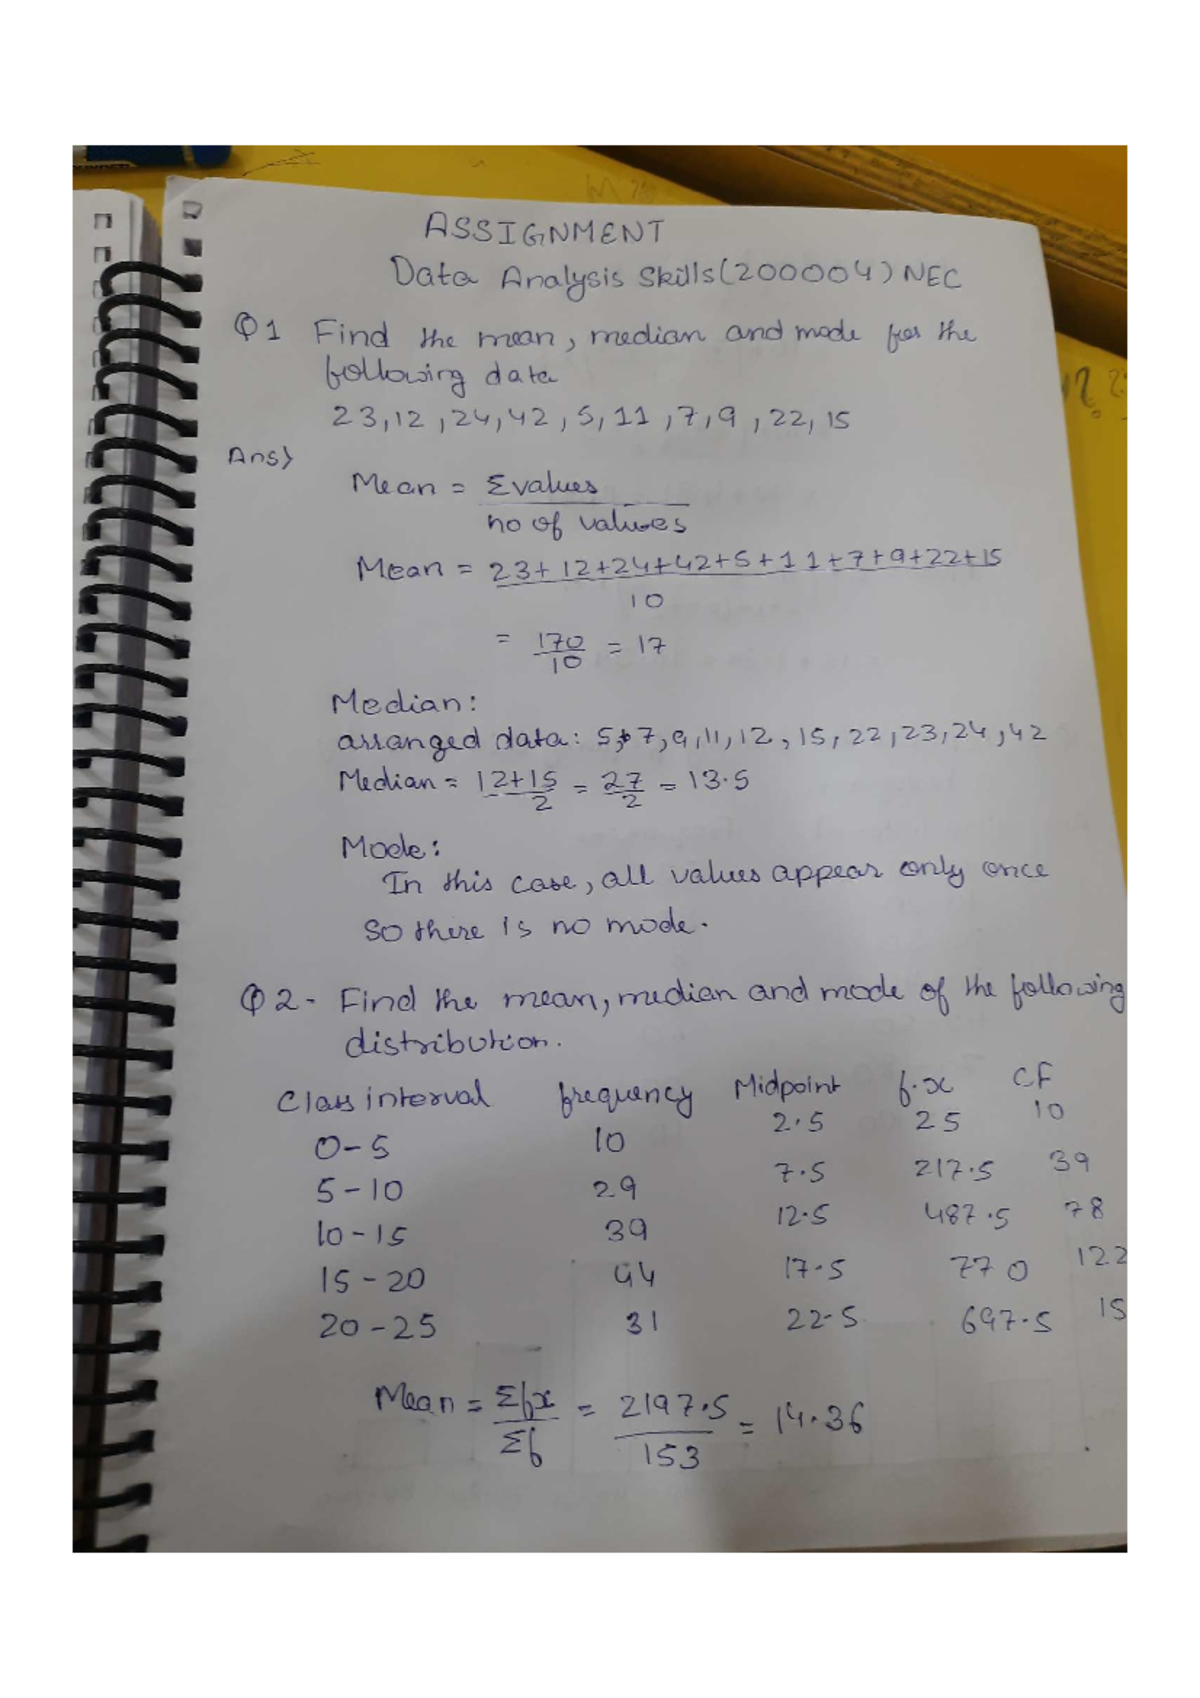 ASSIGNMENT
Data Analysis Skills (200004) NEC
Q1 Find the mean, median and mode for the
following data
23, 12, 24, 42, 5, 11, 7, 9, 22, 15
Ans)
Mean = Σvalues
no of values
Mean = 23+12+24+42+5+11+7+9+22+15
10
= 170/10 = 17
Median:
arranged data: 5, 7, 9, 11, 12, 15, 22, 23, 24, 42
Median = 12+15/2 = 27/2 = 13.5
Mode:
In this case, all values appear only once
so there is no mode.
Q2- Find the mean, median and mode of the following
distribution.
Class interval frequency Midpoint f.x CF
0-5 10 2.5 25 10
5-10 29 7.5 217.5 39
10-15 39 12.5 487.5 78
15-20 44 17.5 770 122
20-25 31 22.5 697.5 15
Mean = Σfx/Σf = 2197.5/153 = 14.36